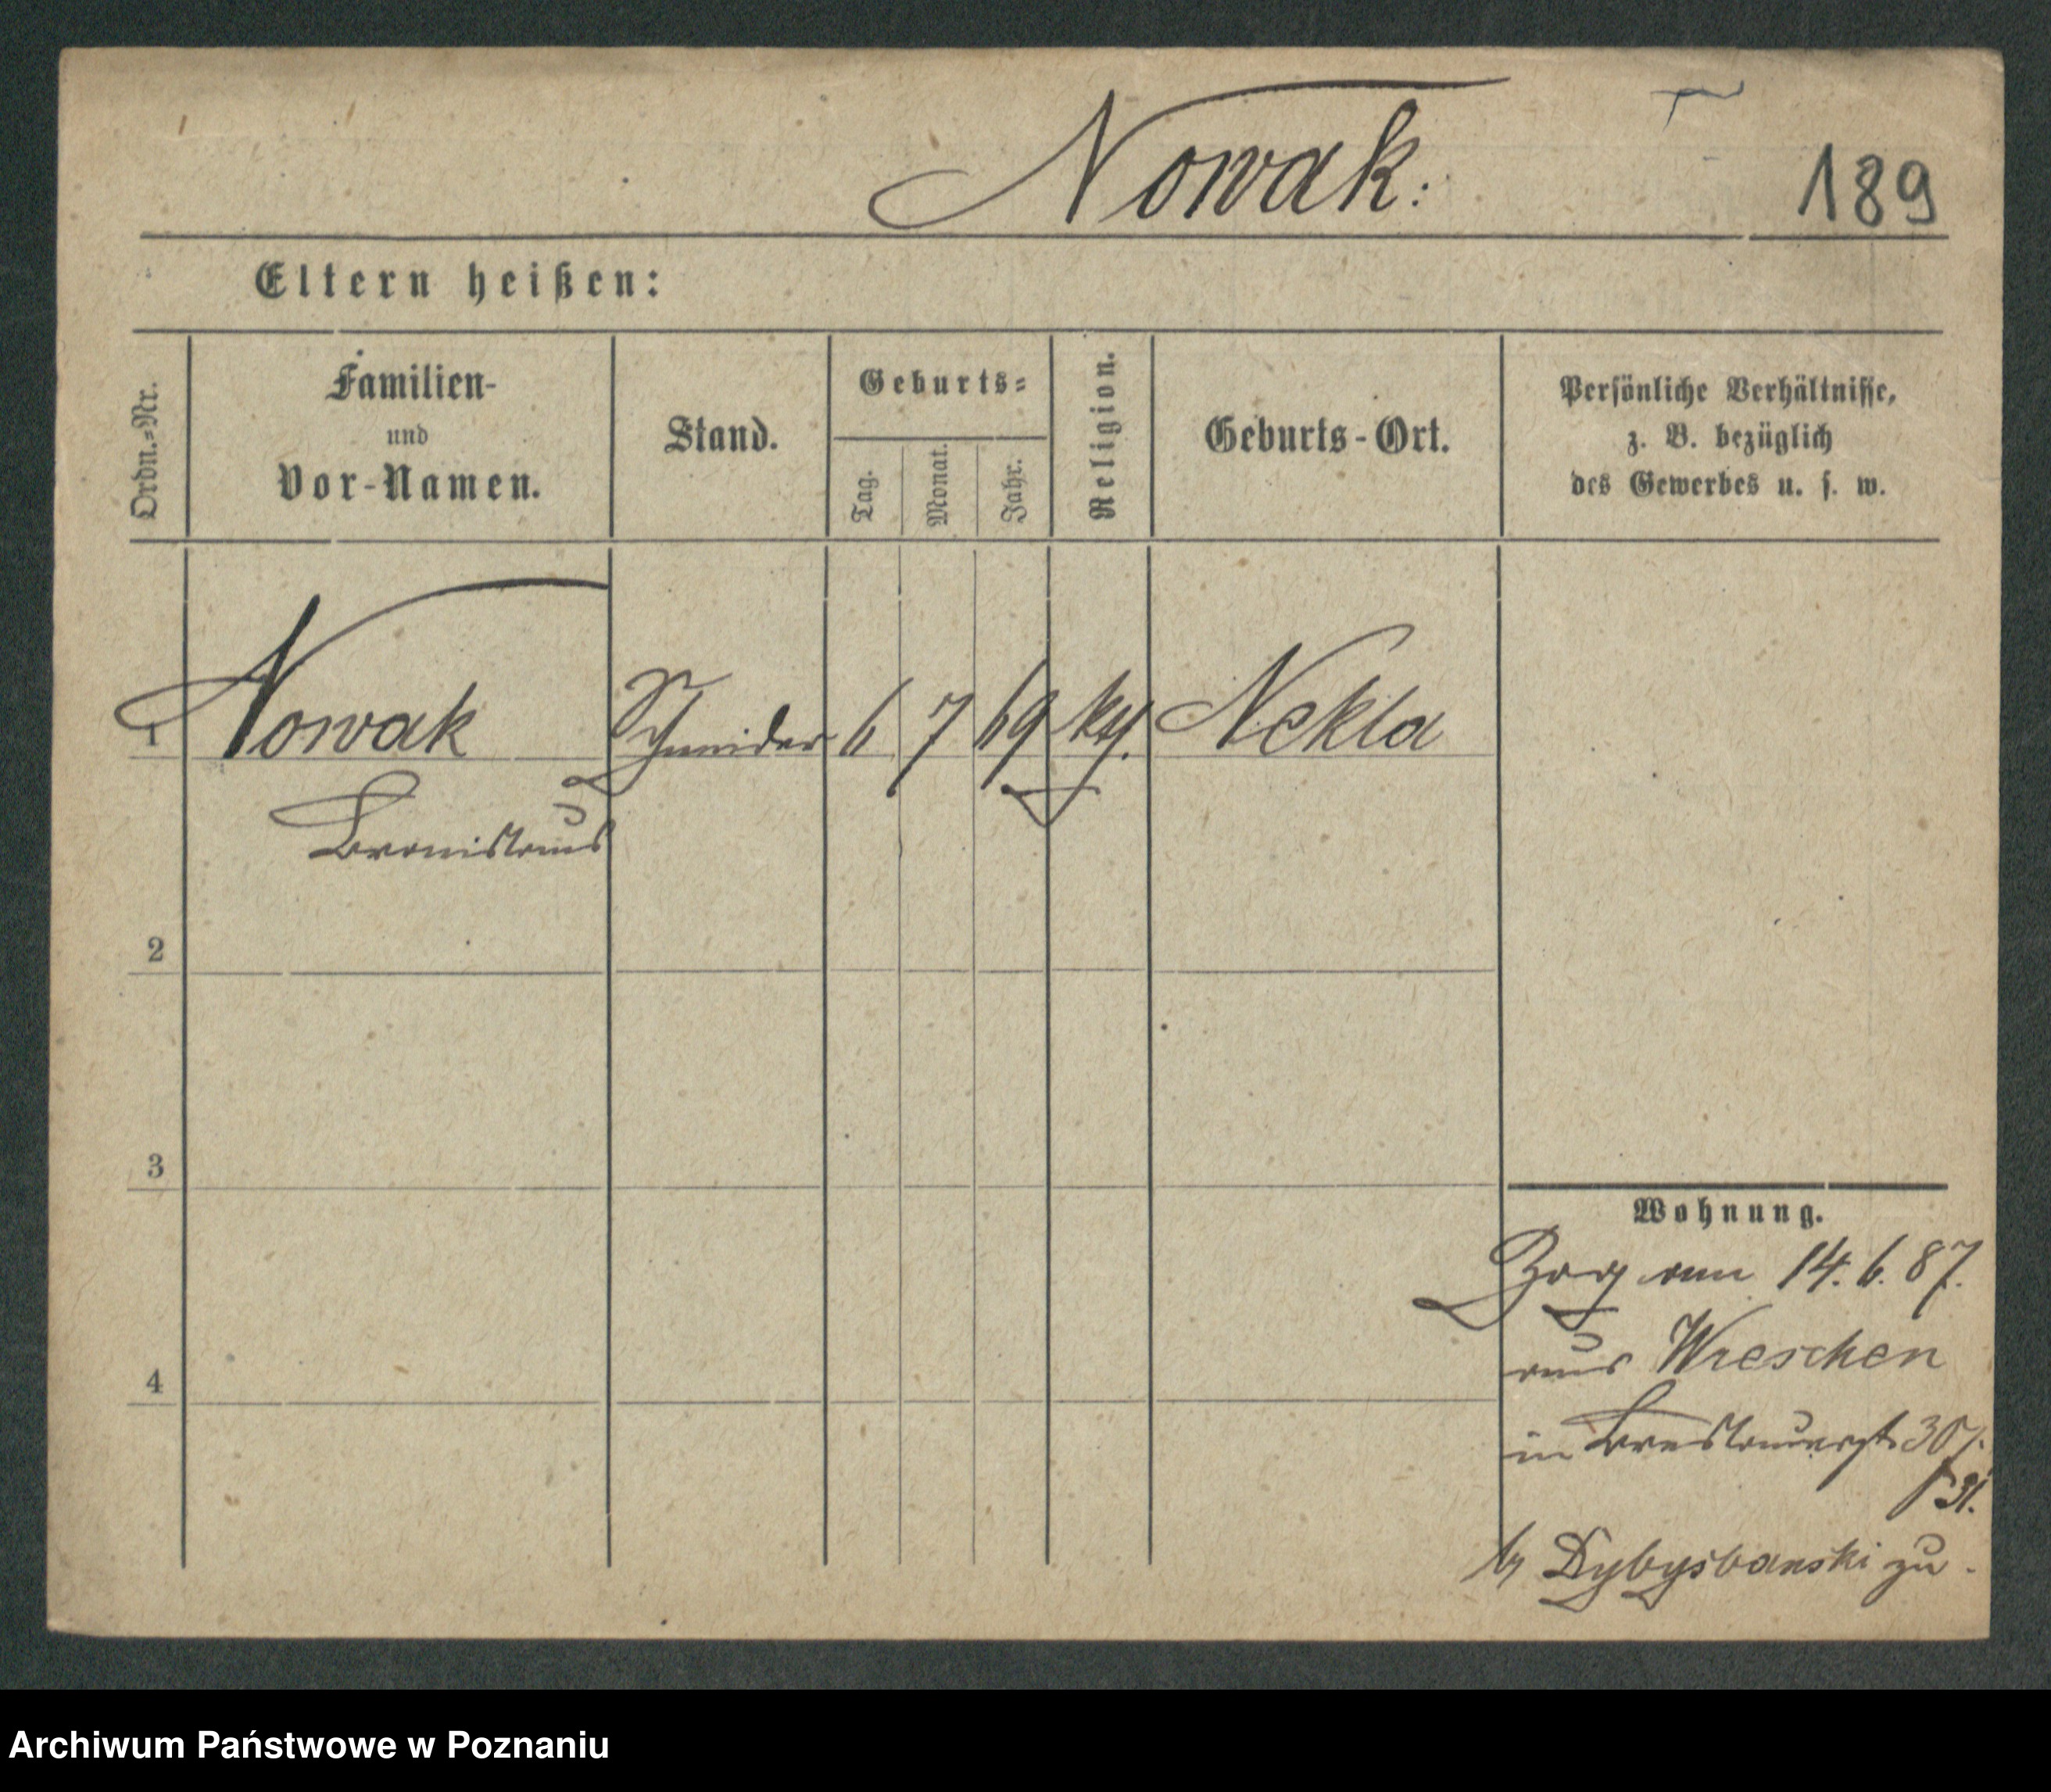 Nowak:
189
Eltern heißen:
Ordn.-Nr.
Familien-
und
Vor-Namen.
Stand.
Geburts-
Tag.
Monat.
Jahr.
Religion.
Geburts-Ort.
Persönliche Verhältnisse,
z. B. bezüglich
des Gewerbes u. s. w.
1 Nowak Schneider 6 7 69 kth. Nekla
Bronislaus
2
3
4
Wohnung.
Zog am 14. 6. 87.
aus Wreschen
in Breslauerst. 30/
31.
b/ Dybysbanski zu.
Archiwum Państwowe w Poznaniu